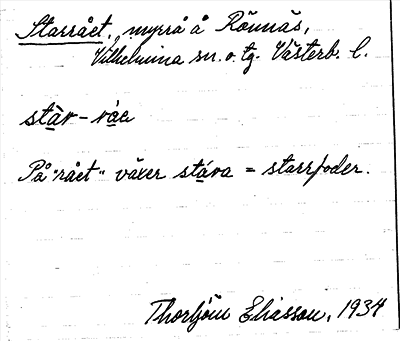 Starrået, myrrå å Rönnäs,
Vilhelmina sn. o. tg. Västerb. l.
stàr-ráe
På "rået" växer stára = starrfoder.
Thorbjörn Eliasson, 1934